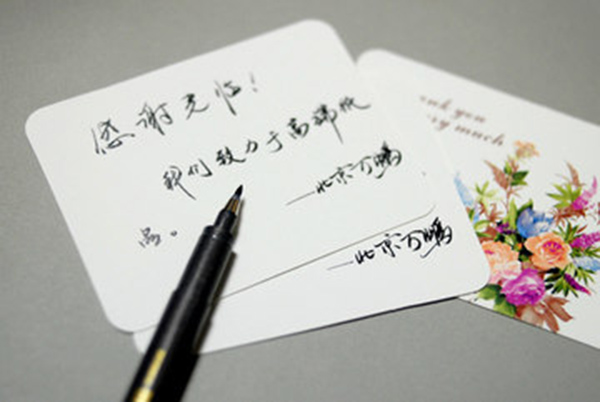 感谢光临!
我们致力于高端饰
品。
—北京万鹏
—北京万鹏
ank you
very much